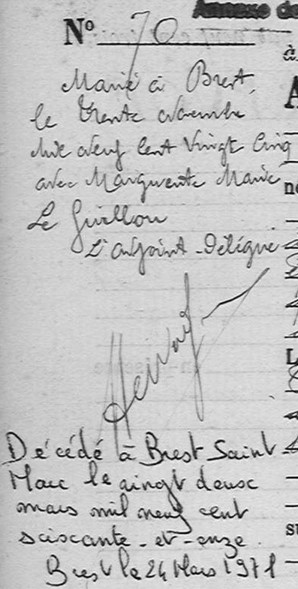 Annexe de
N° 70
Marié à Brest,
le trente Novembre
Mil Neuf Cent Vingt Cinq
avec Marguerite Marie
Le Guillou
L'adjoint-Délégué
Décédé à Brest Saint
Marc le vingt deux
mars mil neuf cent
soixante-et-onze
Brest le 24 Mars 1971